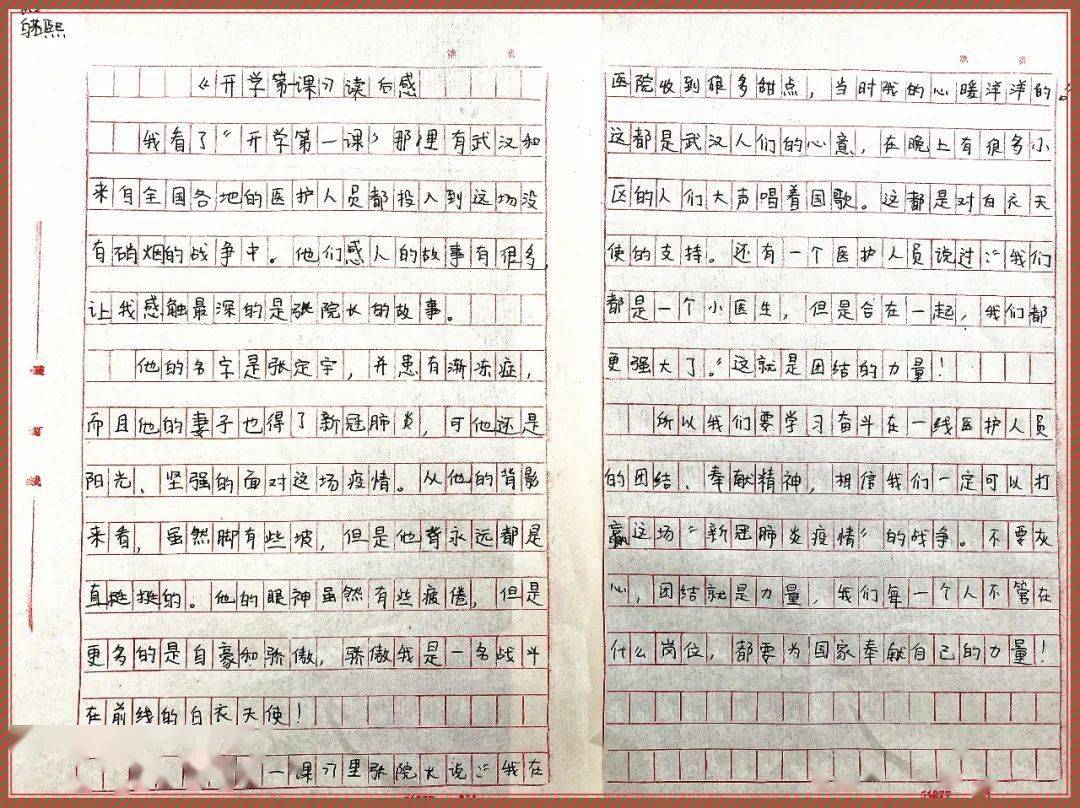 熙
第 页
《开学第一课》读后感
我看了“开学第一课》那里有武汉和
来自全国各地的医护人员都投入到这场没
有硝烟的战争中。他们感人的故事有很多,
让我感触最深的是张院长的故事。
他的名字是张定宇,并患有渐冻症,
而且他的妻子也得了新冠肺炎,可他还是
阳光、坚强的面对这场疫情。从他的背影
来看,虽然脚有些坡,但是他背永远都是
直挺挺的。他的眼神虽然有些疲倦,但是
更多的是自豪和骄傲,骄傲我是一名战斗
在前线的白衣天使!
一课》里张院长说:“我在
第 页
医院收到很多甜点,当时我的心暖洋洋的
这都是武汉人们的心意,在晚上有很多小
区的人们大声唱着国歌。这都是对白衣天
使的支持。还有一个医护人员说过:“我们
都是一个小医生,但是合在一起,我们都
更强大了。”这就是团结的力量!
所以我们要学习奋斗在一线医护人员
的团结、奉献精神,相信我们一定可以打
赢这场“新冠肺炎疫情”的战争。不要灰
心,团结就是力量,我们每一个人不管在
什么岗位,都要为国家奉献自己的力量!